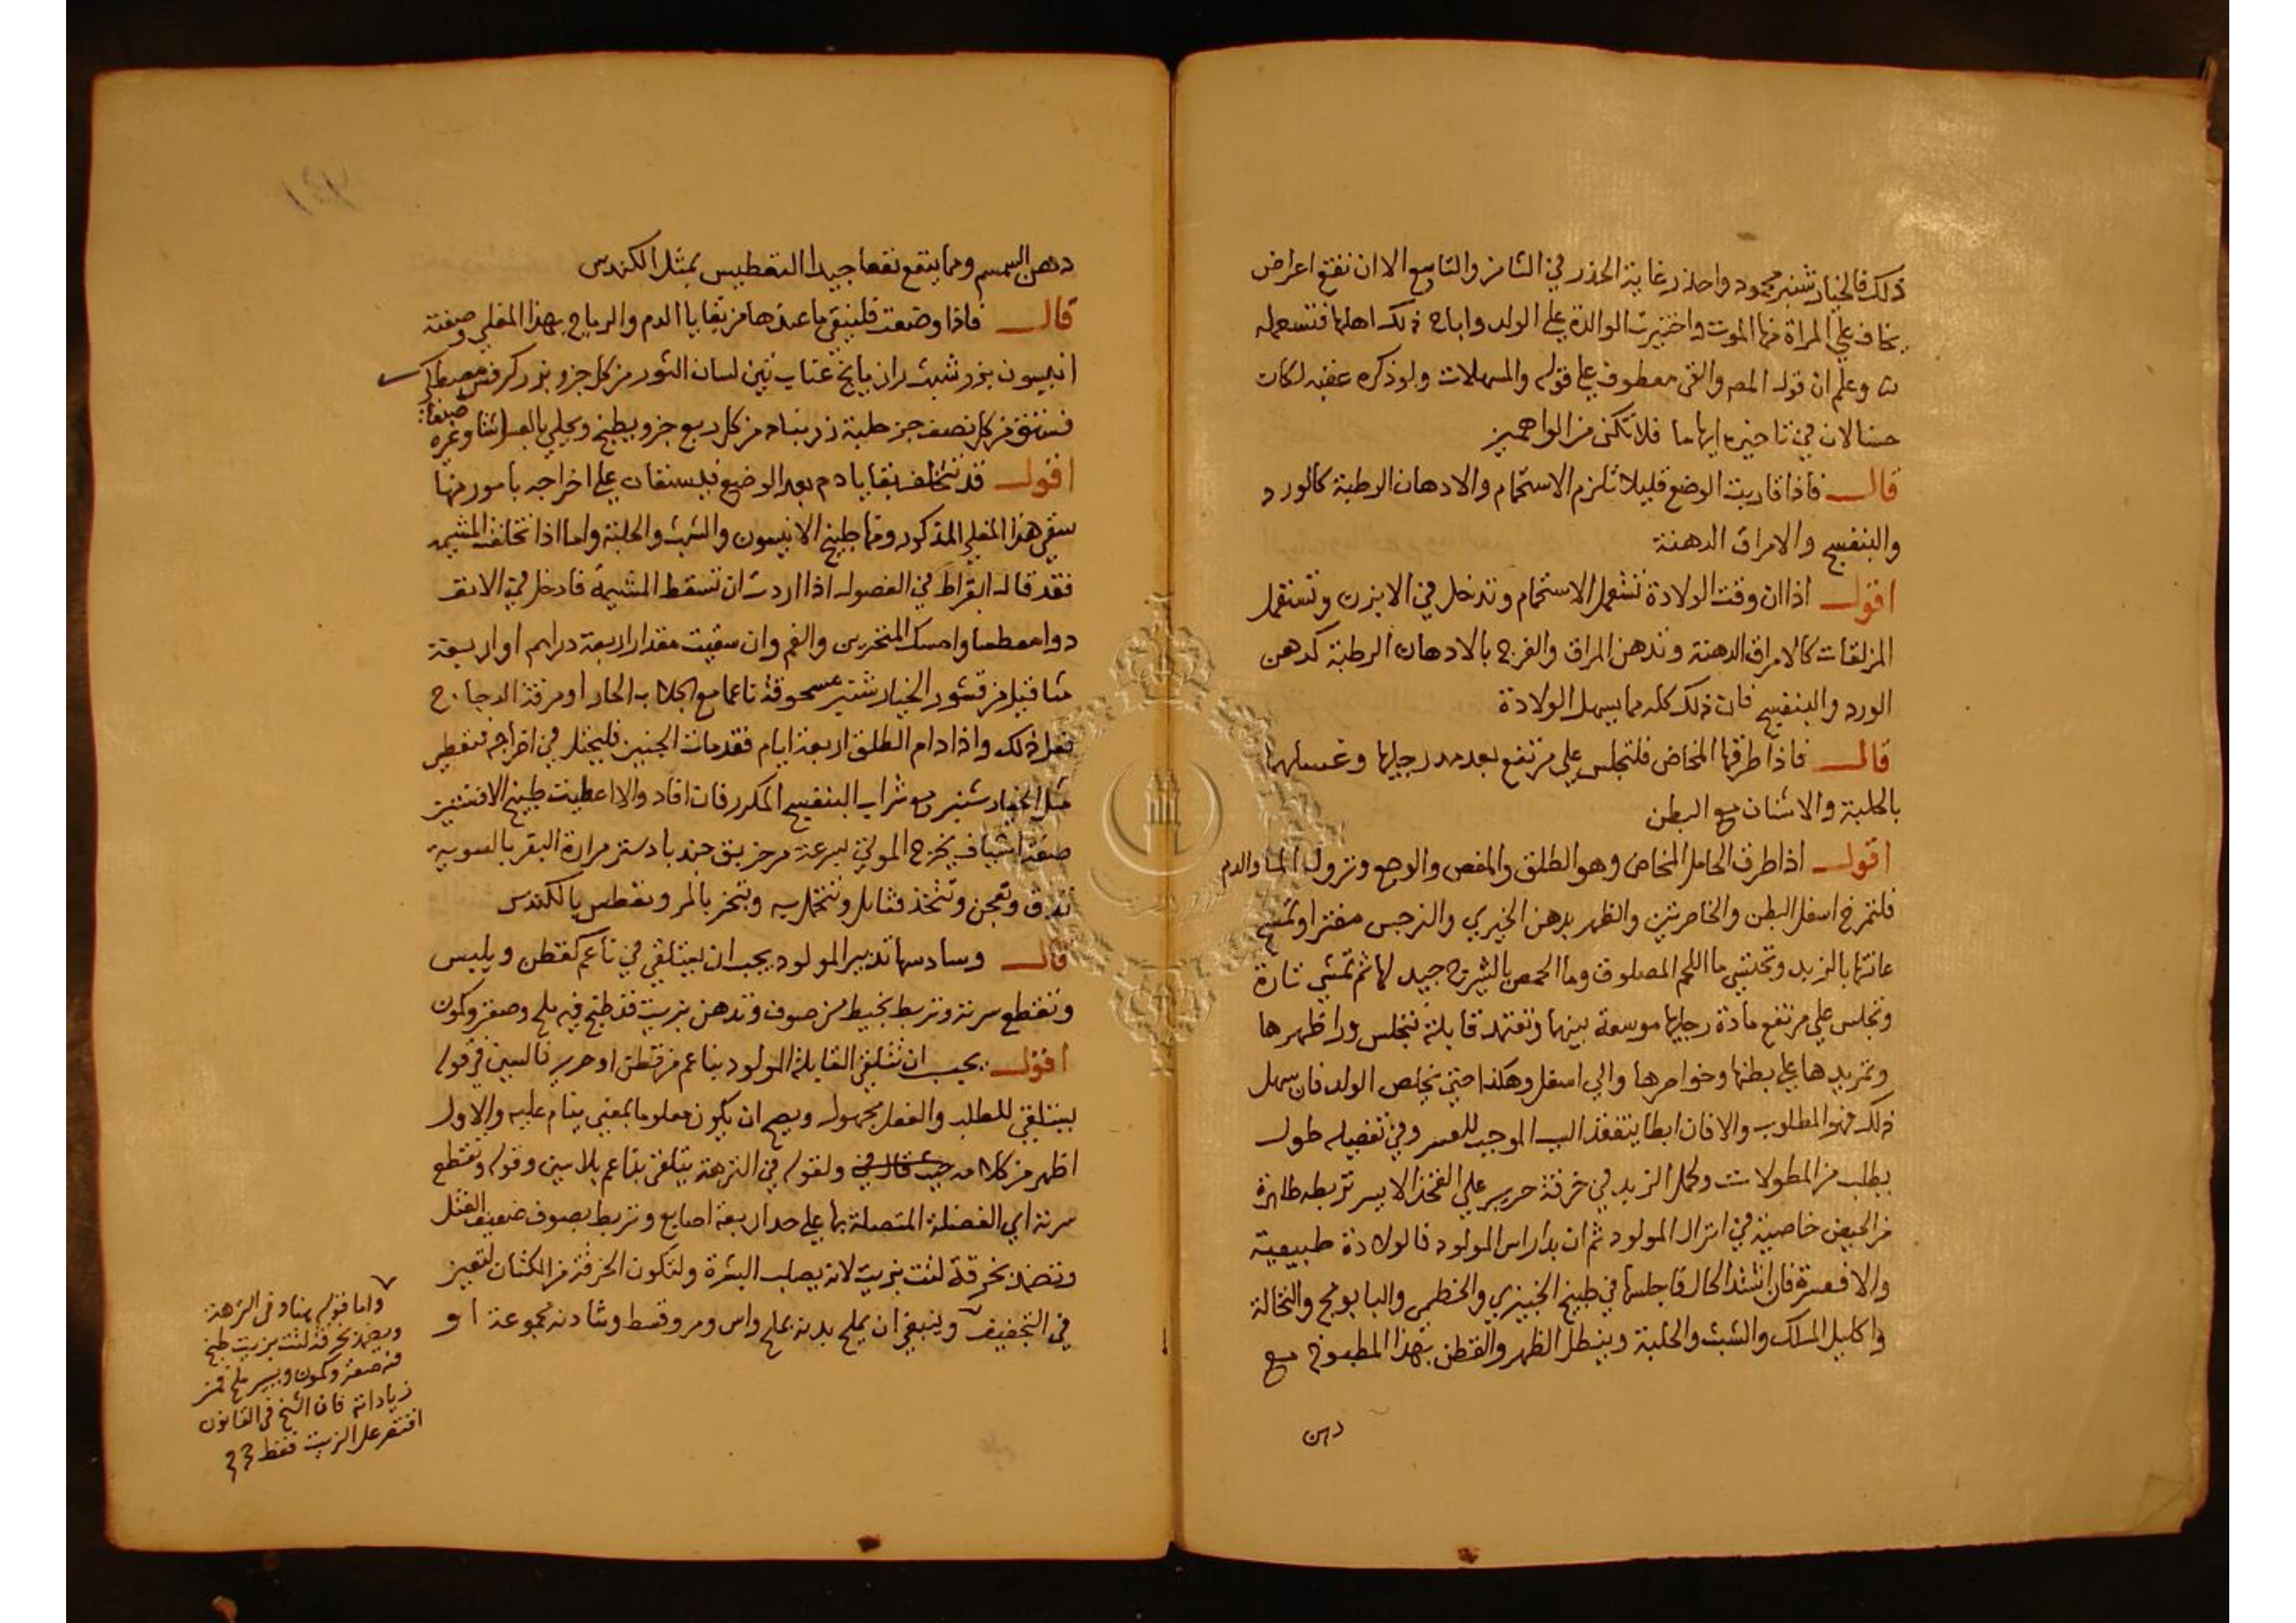 ذلك فالخيار شنبر محمود واحذر غاية الحذر في الثامن والتاسع الا ان تفتح اعراض
يخاف علي المراة منها الموت واختيرت الوالدة علي الولد واباح ذلك اهلها فتستعمله
واعلم ان قوله المص والقي معطوف علي قوله والمسهلات ولو ذكره عقبه لكان
حسنا لان في تاخيره ايهاما فلا تكن من الواهمين
قال فاذا قاربت الوضع قليلا تلزم الاستحمام والادهان الرطبة كالورد
والبنفسج والامراق الدهنة
اقول اذا ان وقت الولادة تستعمل الاستحمام وتدخل في الابزن وتستعمل
المزلقات كالامراق الدهنة وتدهن المراق والفرج بالادهان الرطبة كدهن
الورد والبنفسج فان ذلك كله مما يسهل الولادة
قال فاذا طرقها المخاض فلتجلس علي مرتفع بعد مد رجليها وغسلهما
بالحلبة والاشنان مع البطن
اقول اذا طرق الحامل المخاض وهو الطلق والمغص والوجع ونزول الما والدم
فلتمرخ اسفل البطن والخاصرتين والظهر بدهن الخيري والنرجس مفترا وتمسح
عانتها بالزبد وتحتسي ما اللحم المصلوق وما الحمص بالشيرج جيد لها ثم تمشي تارة
وتجلس علي مرتفع مادة رجليها موسعة بينهما وتعتمد قابلة تجلس ورا ظهرها
وتمر يدها علي بطنها وخواصرها والي اسفل وهكذا حتي يخلص الولد فان سهل
ذلك فهو المطلوب والا فان ابطا يتفقد السبب الموجب للعسر وفي تفصيله طول
يطلب من المطولات وحمل الزبد في خرقة حرير علي الفخذ الايسر تربطه طاهرة
من الحيض خاصية في انزال المولود ثم ان بدا راس المولود فالولادة طبيعية
والا فعسرة فان اشتد الحال فاجلسها في طبيخ الخبيزي والخطمي والبابونج والنخالة
واكليل الملك والشبث والحلبة وينطل الظهر والقطن بهذا المطبوخ مع
دهن
دهن السمسم ومما ينفع نفعا جيدا التعطيس بمثل الكندس
قال فاذا وضعت فلينقي ما عندها من بقايا الدم والرياح بهذا المغلي وصفته
انيسون بزر شبث رازيانج عناب تين لسان الثور من كل جزو بزر كرفس مصطكي
فستق من كل نصف جز حلبة زرنباد من كل ربع جزو يطبخ ويحلي بالعسل شتا وغيره صيفا
اقول قد تتخلف بقايا دم بعد الوضع فيستعان علي اخراجه بامور منها
سقي هذا المغلي المذكور ومنها طبيخ الانيسون والشبث والحلبة واما اذا تخلفت المشيمة
فقد قال ابقراط في الفصول اذا اردت ان تسقط المشيمة فادخل في الانف
دوا معطسا وامسك المنخرين والفم وان سقيت مقدار اربعة دراهم او اربعة
مثاقيل من قشور الخيار شنبر مسحوقة ناعما مع الجلاب الحار او مرقة الدجاج
فعل ذلك واذا دام الطلق اربعة ايام فقد مات الجنين فليحتل في اخراجه فتعطي
مثل الخيار شنبر مع شراب البنفسج المكرر فان افاد والا اعطيت طبيخ الافسنتين
صفة اشياف يخرج الموتي بسرعة مر خربق جندبادستر مرارة البقر بالسوية
تدق وتعجن وتتخذ فتايل وتتحمل به وتبخر بالمر وتعطس بالكندس
قال وسادسها تدبير المولود يجب ان يستلقي في ناعم كقطن ويلبس
وتقطع سرته وتربط بخيط من صوف وتدهن بزيت قد طبخ فيه ملح وصعتر وكمون
اقول يجب ان تتلقي القابلة المولود بناعم من قطن او حرير فالسين في قوله
يستلقي للطلب والفعل مجهول ويصح ان يكون معلوما بمعني ينام عليه والاول
اظهر من كلامه ولقوله في النزهة يتلقي بناعم بلا سين وقوله وتقطع
سرته اي الفضلة المتصلة بها علي حد اربعة اصابع وتربط بصوف ضعيف الفتل
وتضمد بخرقة لتت بزيت لانه يصلب البشرة ولتكون الخرقة من الكتان لتعين
في التجفيف وينبغي ان يملح بدنه بملح واس ومر وقسط وشادنه مجموعة او
واما قوله هنا وفي النزهة
ويضمد بخرقة لتت بزيت طبخ
فيه صعتر وكمون ويسير ملح فمن
زياداته فان الشيخ في القانون
اقتصر علي الزيت فقط